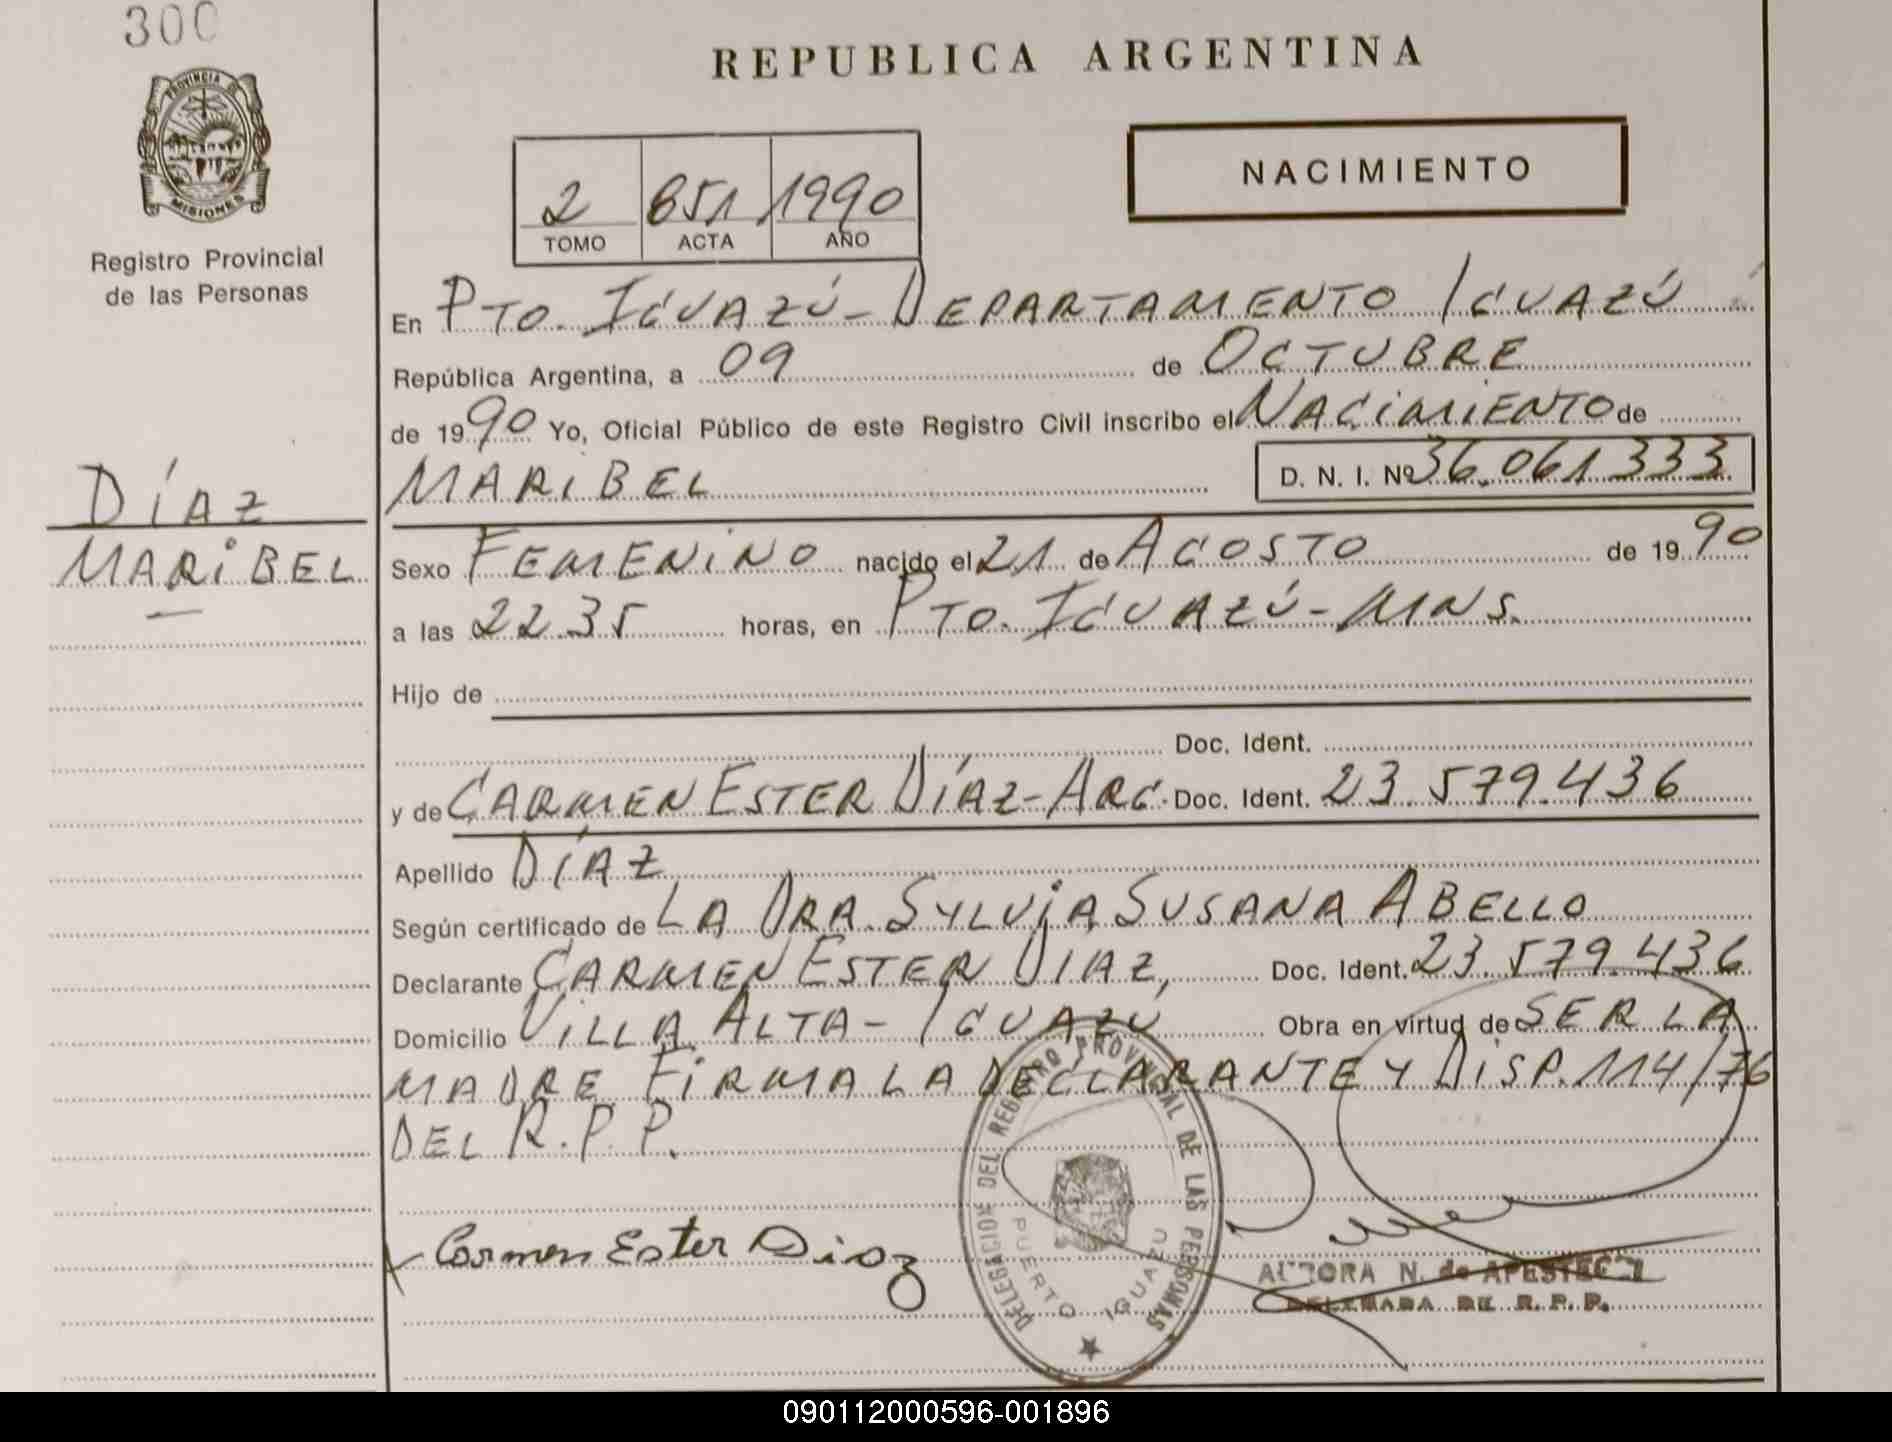 300
PROVINCIA DE
MISIONES
Registro Provincial
de las Personas
REPUBLICA ARGENTINA
2 651 1990
TOMO ACTA AÑO
NACIMIENTO
En PTO. IGUAZÚ - DEPARTAMENTO IGUAZÚ
República Argentina, a 09 de OCTUBRE
de 1990 Yo, Oficial Público de este Registro Civil inscribo el NACIMIENTO de
MARIBEL D. N. I. Nº 36.061.333
DÍAZ
MARIBEL
Sexo FEMENINO nacido el 21 de AGOSTO de 1990
a las 22.35 horas, en PTO. IGUAZÚ - MNS.
Hijo de
Doc. Ident.
y de CARMEN ESTER DÍAZ - ARG. Doc. Ident. 23.579.436
Apellido DÍAZ
Según certificado de LA DRA. SYLVIA SUSANA ABELLO
Declarante CARMEN ESTER DIAZ, Doc. Ident. 23.579.436
Domicilio VILLA ALTA - IGUAZÚ Obra en virtud de SER LA
MADRE FIRMA LA DECLARANTE Y DISP. 114/76
DEL R.P.P.
Carmen Ester Diaz
DELEGACION DEL REGISTRO PROVINCIAL DE LAS PERSONAS
PUERTO IGUAZU
AURORA N. de
DELEGADA DE R. P. P.
090112000596-001896